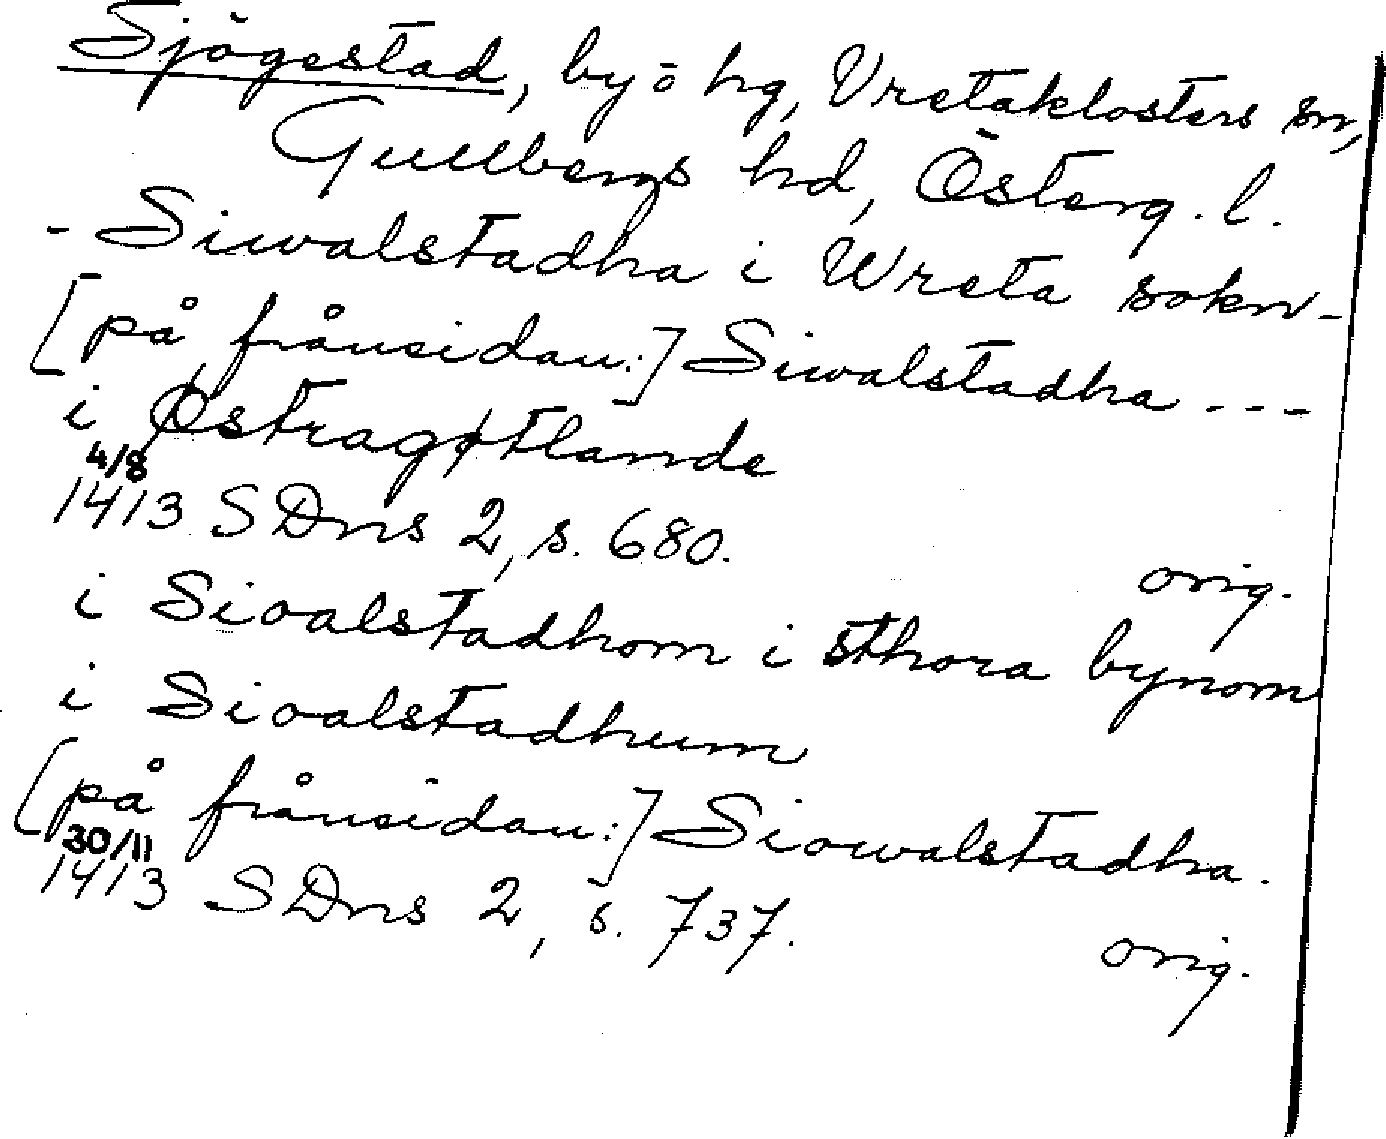 Sjögestad, by o hg, Vretaklosters sn,
Gullbergs hd, Österg. l.
- Siwalstadha i Wreta sokn -
[på frånsidan:] Siwalstadha ---
i Østragøtlande
4/8
1413 SDns 2, s. 680. orig.
i Sioalstadhom i sthora bynom
i Sioalstadhum
[på frånsidan:] Siowalstadha.
30/11
1413 SDns 2, s. 737. orig.